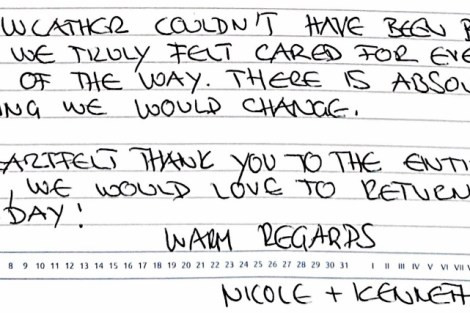 WEATHER COULDN'T HAVE BEEN B
WE TRULY FELT CARED FOR EVE
OF THE WAY. THERE IS ABSOL
ING WE WOULD CHANGE.
EARTFELT THANK YOU TO THE ENTI
, WE WOULD LOVE TO RETURN
DAY!
WARM REGARDS
8 9 10 11 12 13 14 15 16 17 18 19 20 21 22 23 24 25 26 27 28 29 30 31 I II III IV V VI VII V
NICOLE + KENNETH